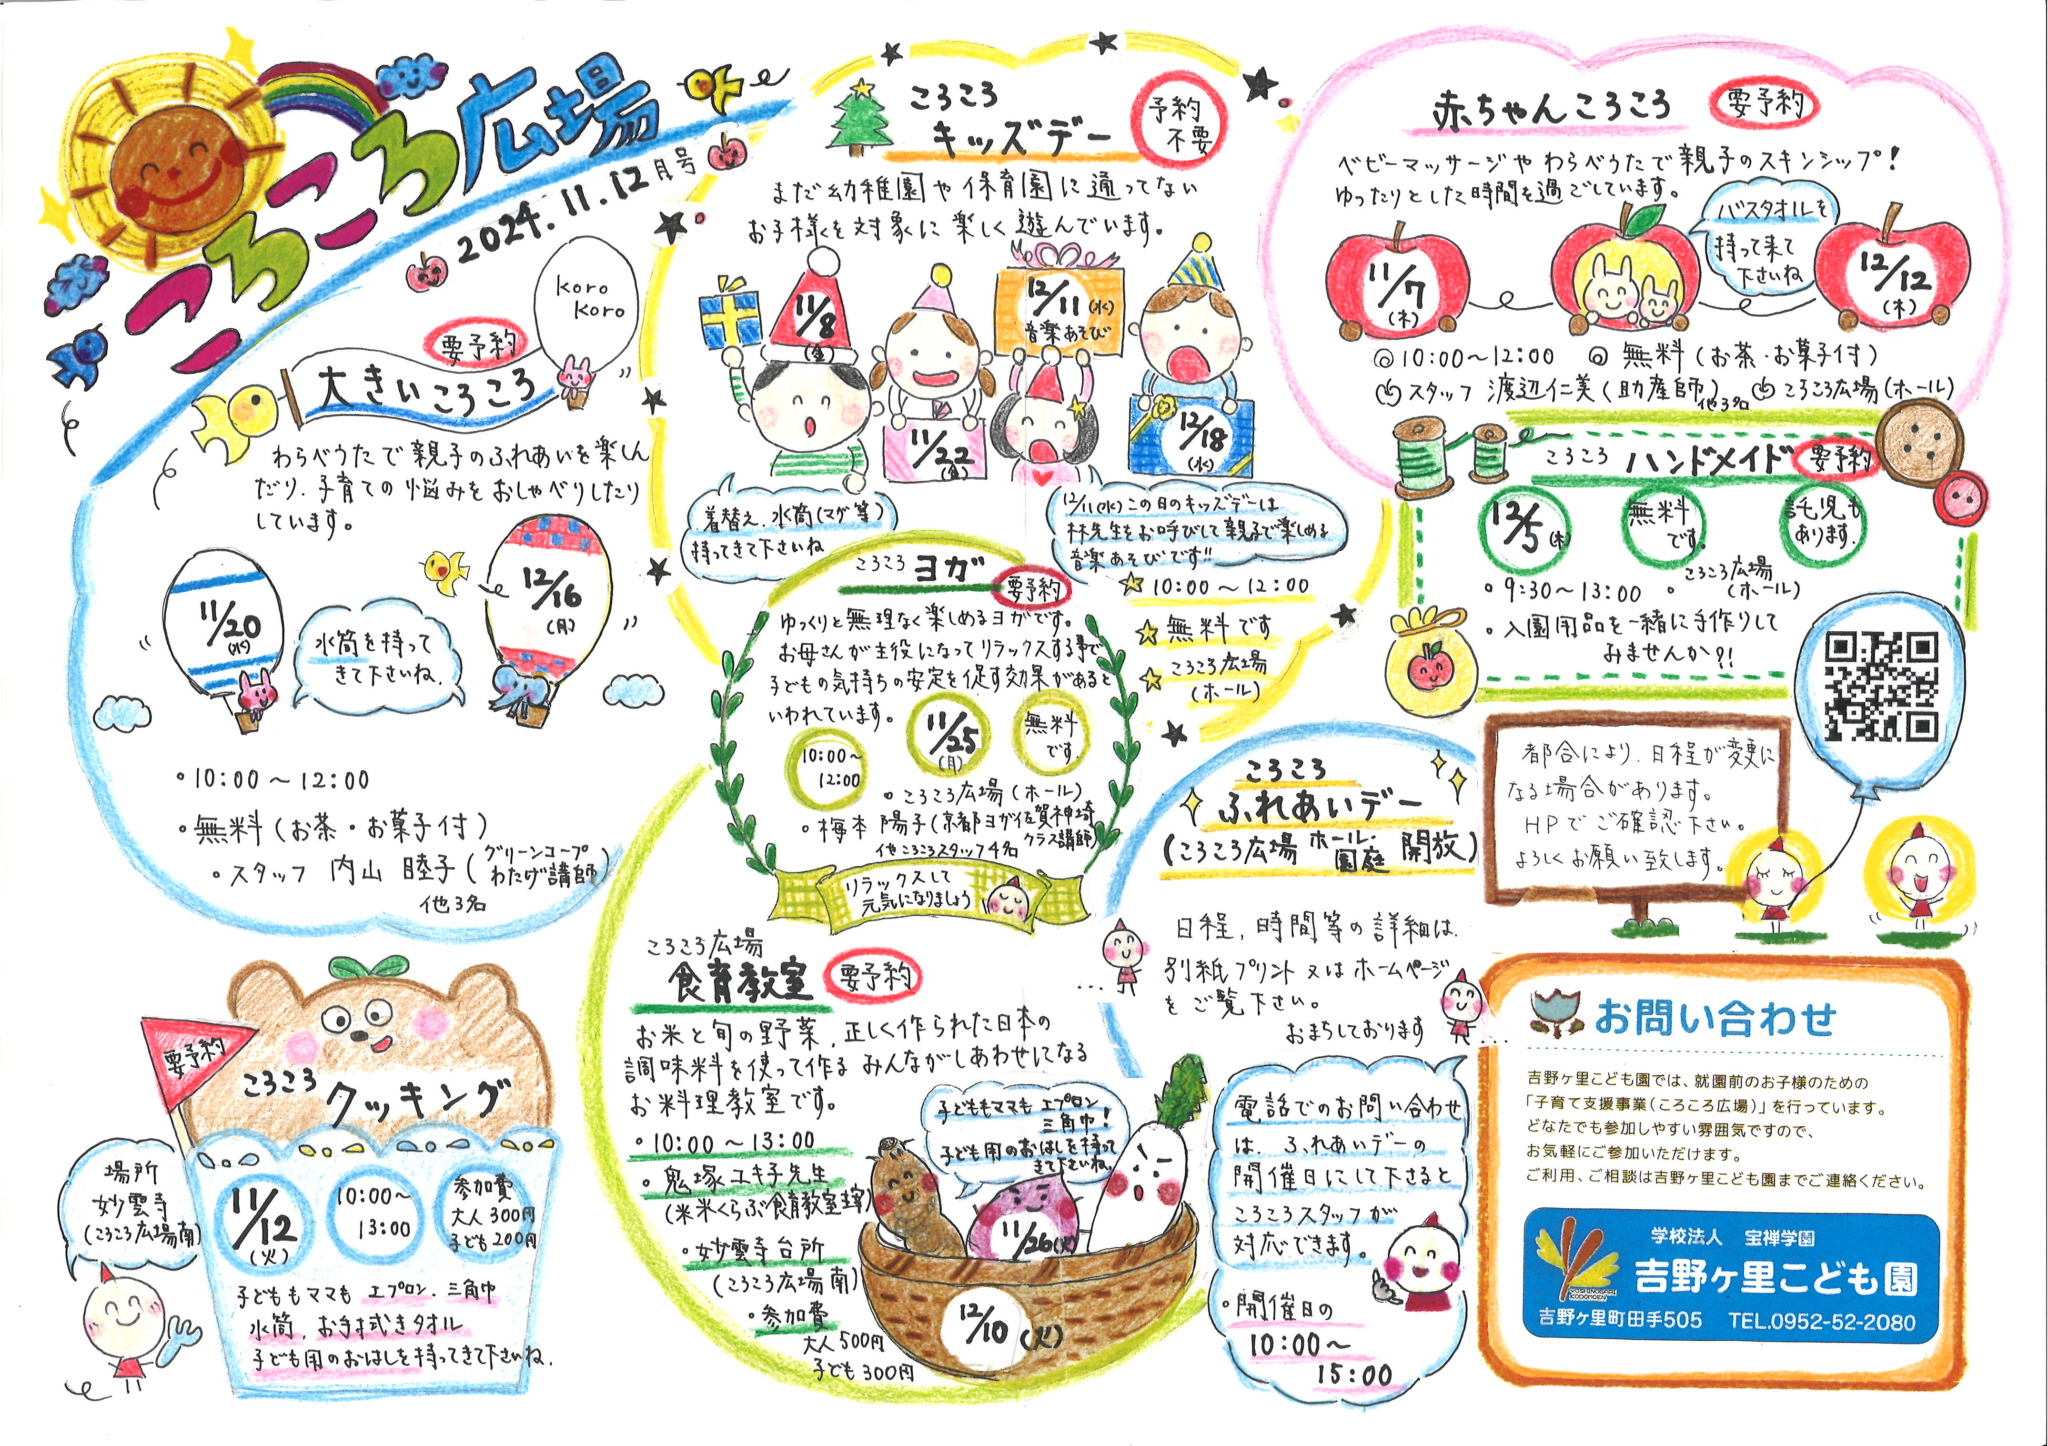 ころころ広場
2024.11.12月号
koro
koro
要予約
大きいころころ
わらべうたで親子のふれあいを楽しん
だり、子育ての悩みをおしゃべりしたり
しています。
11/20
(水)
水筒を持って
きて下さいね。
12/16
(月)
・10:00～12:00
・無料(お茶・お菓子付)
・スタッフ 内山 睦子(グリーンコープ
わたげ講師)
他3名
ころころ
キッズデー
予約
不要
まだ幼稚園や保育園に通ってない
お子様を対象に楽しく遊んでいます。
11/8
(金)
11/22
(金)
12/11(水)
音楽あそび
12/18
(水)
着替え、水筒(マグ等)
持ってきて下さいね
12/11(水)この日のキッズデーは
林先生をお呼びして親子で楽しめる
音楽あそびです!!
☆10:00～12:00
☆無料です
☆ころころ広場
(ホール)
赤ちゃんころころ
要予約
ベビーマッサージやわらべうたで親子のスキンシップ!
ゆったりとした時間を過ごしています。
バスタオルを
持って来て
下さいね
11/7
(木)
12/12
(木)
◎10:00～12:00 ◎無料(お茶・お菓子付)
スタッフ 渡辺仁美(助産師)他3名 ころころ広場(ホール)
ころころ ハンドメイド
要予約
12/5(木)
無料
です。
託児も
あります。
・9:30～13:00
・ころころ広場
(ホール)
・入園用品を一緒に手作りして
みませんか?!
ころころ ヨガ
要予約
ゆっくりと無理なく楽しめるヨガです。
お母さんが主役になってリラックスする事で
子どもの気持ちの安定を促す効果があると
いわれています。
10:00～
12:00
11/25
(月)
無料
です。
・ころころ広場(ホール)
・梅本 陽子(京都ヨガ佐賀神埼
クラス講師)
他ころころスタッフ4名
リラックスして
元気になりましょう
ころころ
ふれあいデー
(ころころ広場 ホール・
園庭 開放)
日程、時間等の詳細は、
別紙プリント又はホームページ
をご覧下さい。
おまちしております
都合により、日程が変更に
なる場合があります。
HPでご確認下さい。
よろしくお願い致します。
要予約
ころころ
クッキング
場所
妙雲寺
(ころころ広場南)
11/12
(火)
10:00～
13:00
参加費
大人300円
子ども200円
子どももママも エプロン、三角巾
水筒、お手拭きタオル
子ども用のおはしを持ってきて下さいね。
ころころ広場
食育教室
要予約
お米と旬の野菜、正しく作られた日本の
調味料を使って作る みんながしあわせになる
お料理教室です。
・10:00～13:00
・鬼塚ユキ子先生
(米米くらぶ食育教室主宰)
・妙雲寺台所
(ころころ広場南)
・参加費
大人500円
子ども300円
子どももママも エプロン
三角巾!
子ども用のおはしを持って
きて下さいね。
11/26(火)
12/10(火)
電話でのお問い合わせ
は、ふれあいデーの
開催日にして下さると
ころころスタッフが
対応できます。
・開催日の
10:00～
15:00
お問い合わせ
吉野ヶ里こども園では、就園前のお子様のための
「子育て支援事業(ころころ広場)」を行っています。
どなたでも参加しやすい雰囲気ですので、
お気軽にご参加いただけます。
ご利用、ご相談は吉野ヶ里こども園までご連絡ください。
学校法人 宝禅学園
吉野ヶ里こども園
YOSHINOGARI
KODOMOEN
吉野ヶ里町田手505 TEL.0952-52-2080